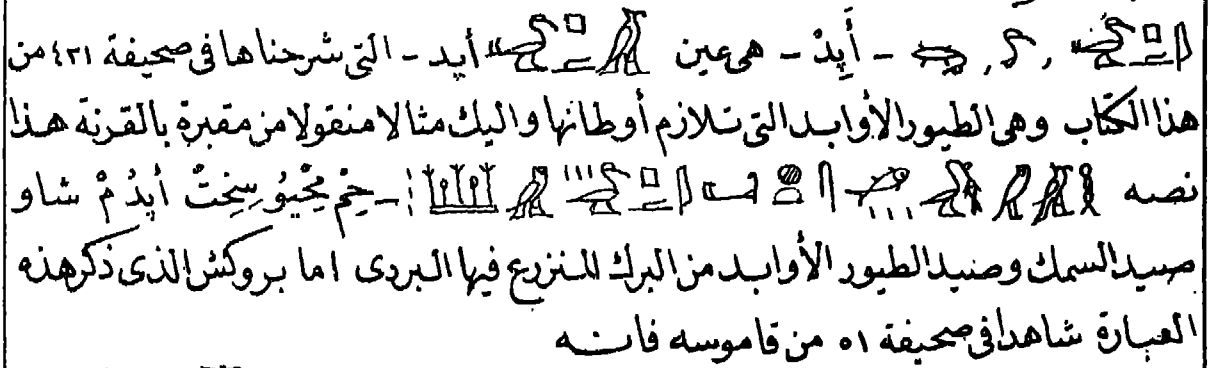 - أَبِدْ - هى عين أبد - التى شرحناها فى صحيفة ٤٢١ من
هذا الكتاب وهى الطيور الأوابد التى تلازم أوطانها واليك مثالا منقولا من مقبرة بالقرنة هذا
نصه - سِخِتْ أبِدُ مْ شاو
صيد السمك وصيد الطيور الأوابد من البرك المنزرع فيها البردى اما بروكش الذى ذكر هذه
العبارة شاهدا فى صحيفة ٥١ من قاموسه فانه